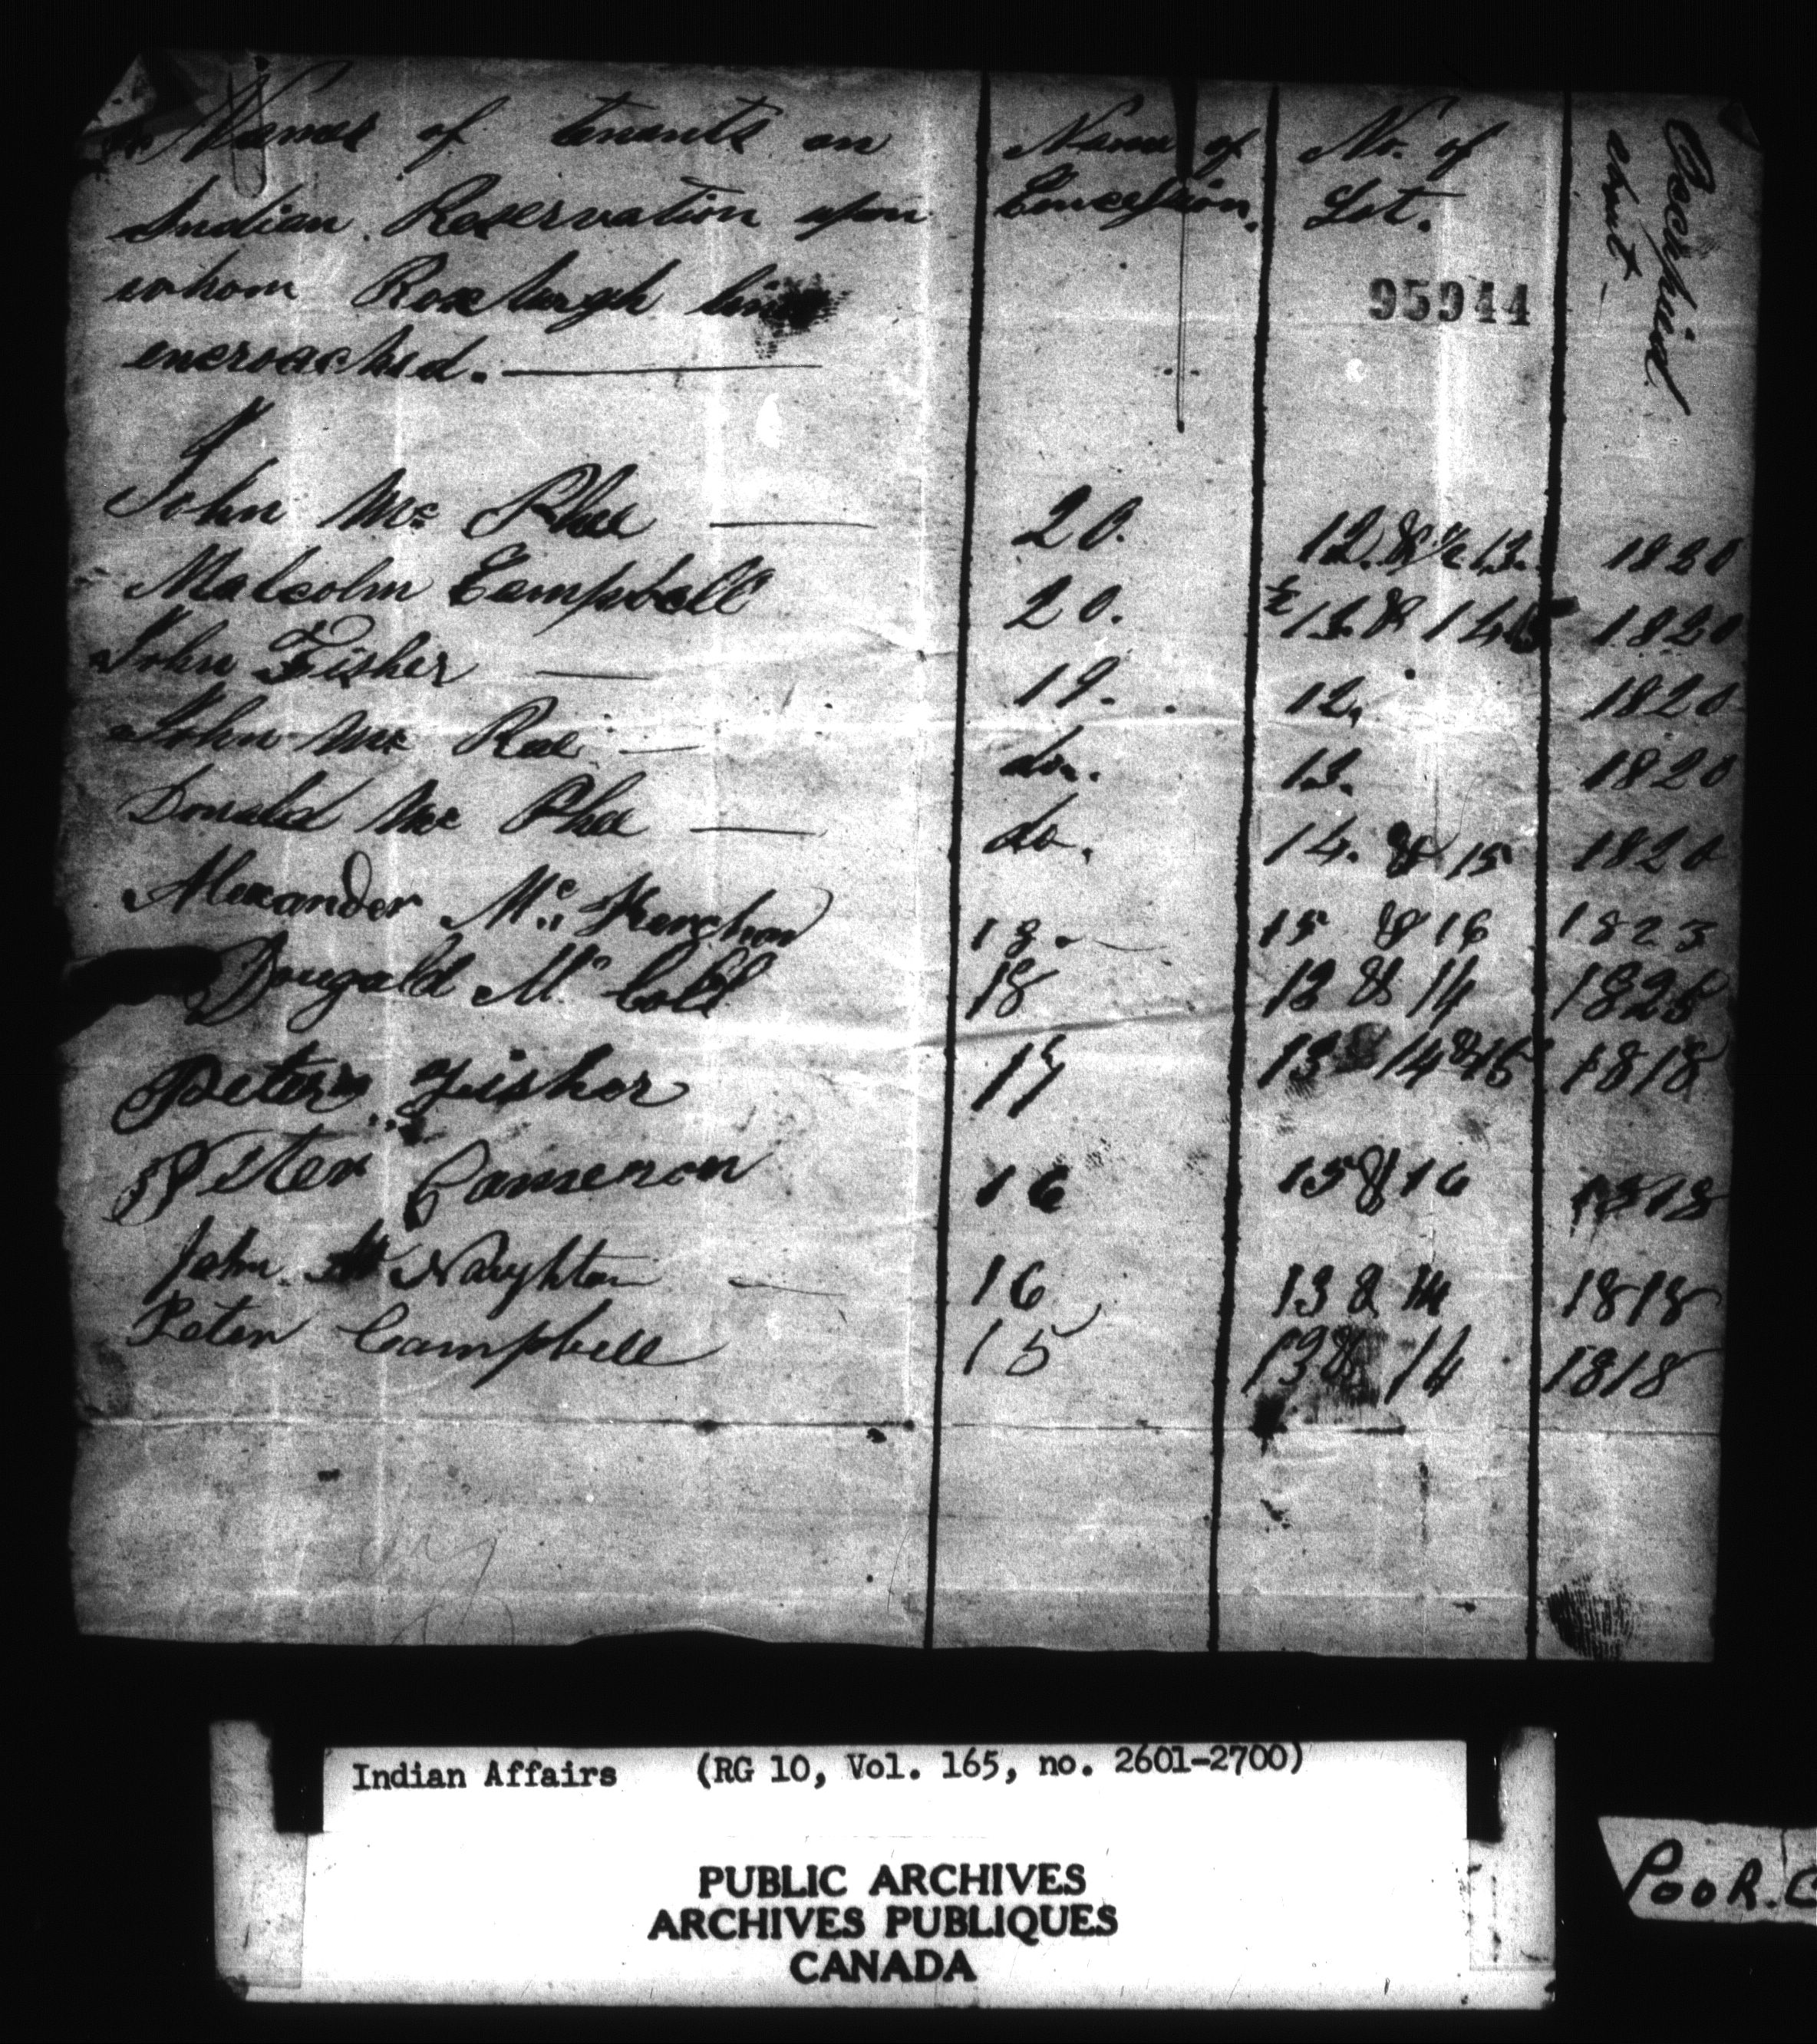 Names of tenants on
Indian Reservation upon
whom Roxburgh line
encroached.
Name of
Concession.
No. of
Lot.
Occupied
about
95944
John Mc Phee — 20. 12. & ½ 13. 1820
Malcolm Campbell 20. ½ 13. & 14 1820
John Fisher — 19. 12. 1820
John Mc Rae — do. 13. 1820
Donald Mc Phee — do. 14. & 15 1820
Alexander Mc 18. 15 & 16 1823
Dougald Mc Coll 18 13 & 14 1825
Peter Fisher 17 13 14 & 15 1818
Peter Cameron 16 15 & 16 1818
John Mc Naughton — 16 13 & 14 1818
Peter Campbell 15 13 & 14 1818
Indian Affairs (RG 10, Vol. 165, no. 2601-2700)
PUBLIC ARCHIVES
ARCHIVES PUBLIQUES
CANADA
POOR.